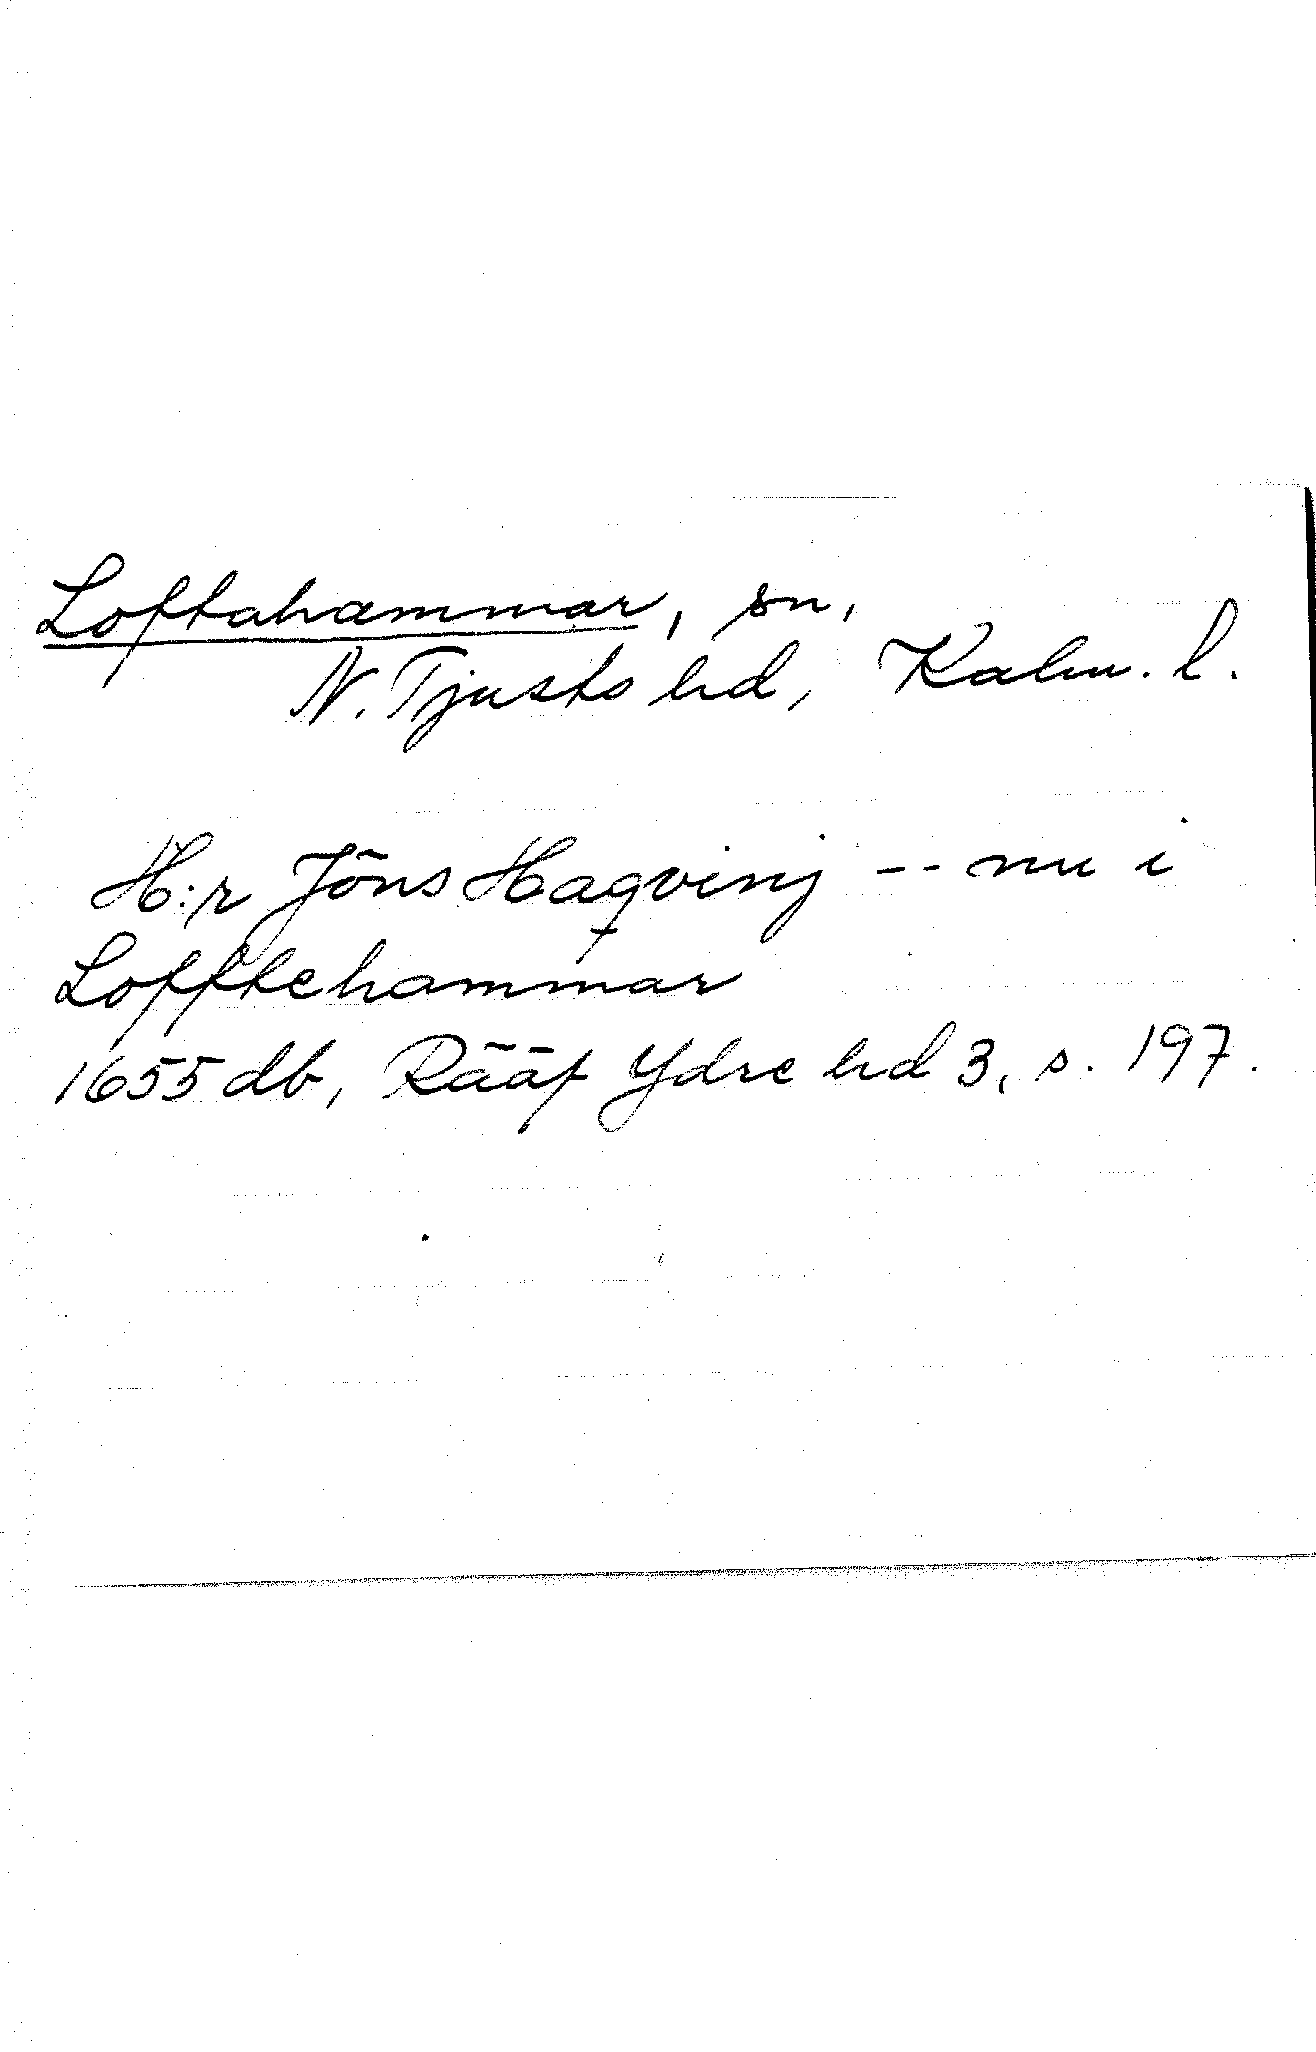 Loftahammar, sn,
N. Tjusts hd, Kalm. l.
H:r Jöns Haqvinj -- nu i
Lofftehammar
1655 db, Rääf Ydre hd 3, s. 197.